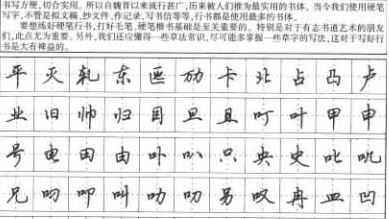 书写方便,切合实用。所以自魏晋以来流行甚广,历来被人们推为最实用的书体。当今我们使用硬笔
写字,不管是拟文稿、抄文件、作记录、写书信等等,行书都是使用最多的书体。
要想练好硬笔行书,打好毛笔、硬笔楷书基础是至关重要的。特别是对于有志书道艺术的朋友
们,此点尤为重要。另外,我们还应懂得一些草法常识,尽可能多掌握一些草字的写法,这对于写好行
书是大有裨益的。
平灭轧东画劢卡北占凸卢
业旧帅归目旦且叮叶甲申
号电田由卟叭只央史叱叽
兄叼叩叫叻叨另叹冉皿凹